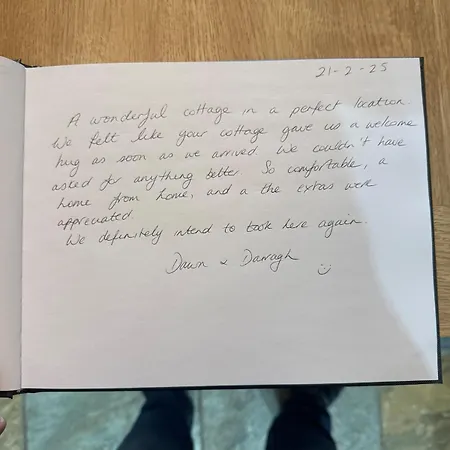 21-2-25
A wonderful cottage in a perfect location.
We felt like your cottage gave us a welcome
hug as soon as we arrived. We couldn't have
asked for anything better. So comfortable, a
home from home, and a the extras were
appreciated.
We definitely intend to book here again.
Dawn & Darragh